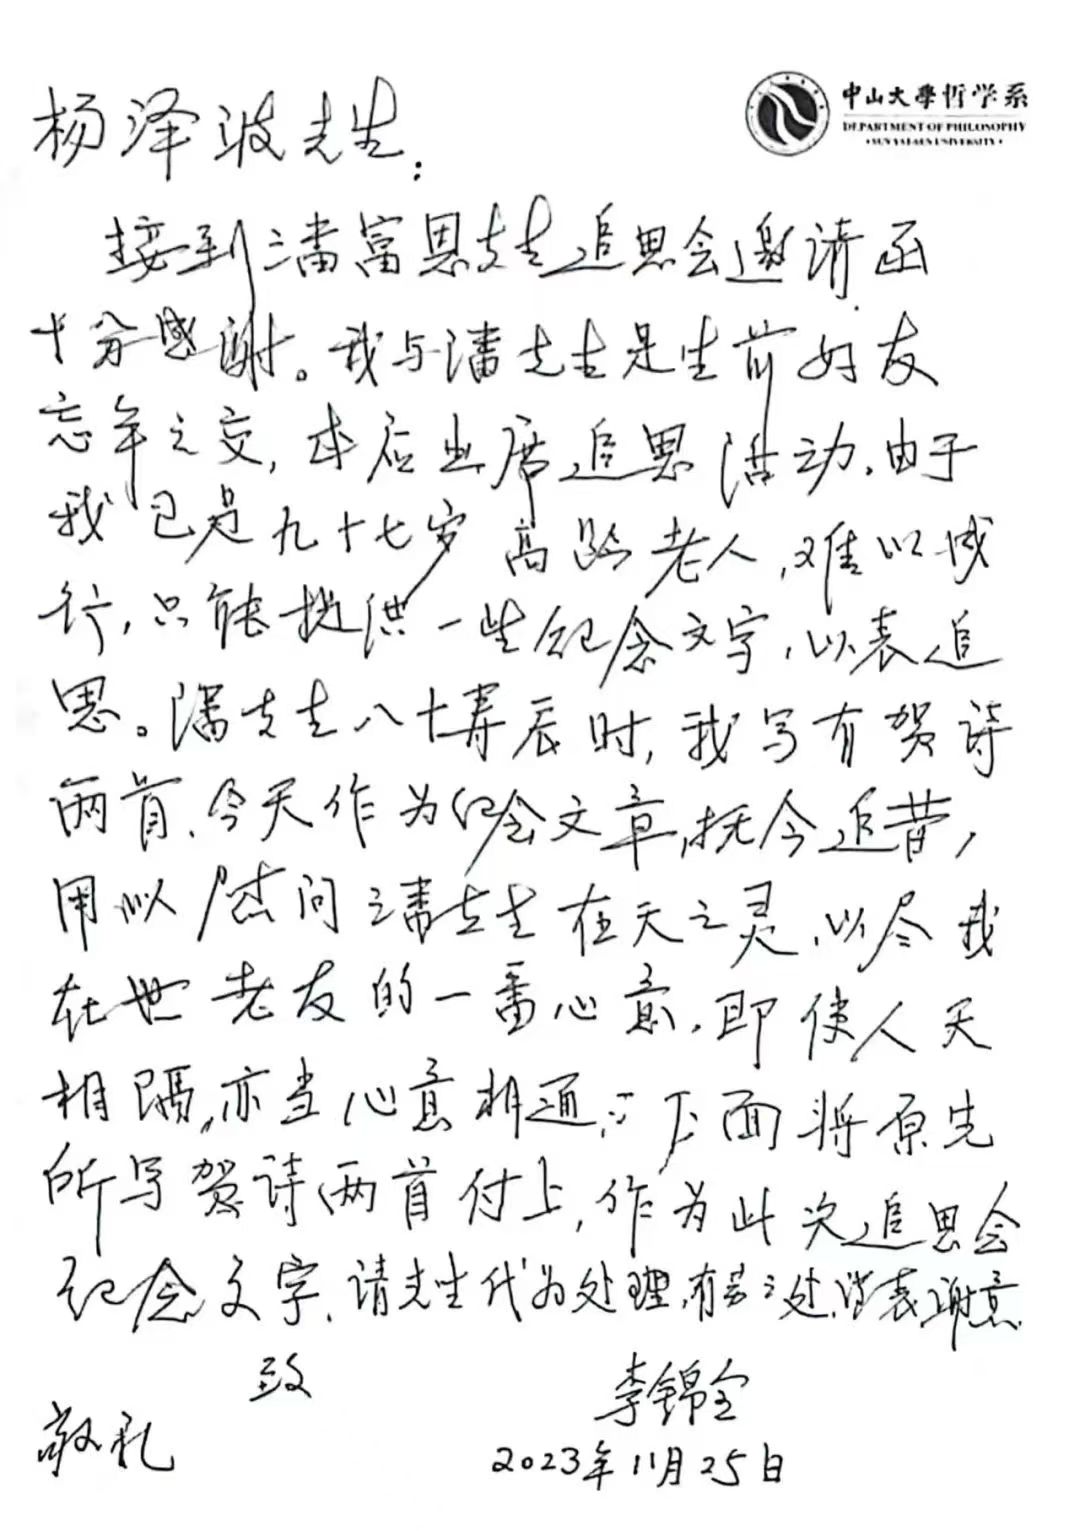 中山大學哲学系
DEPARTMENT OF PHILOSOPHY
·SUN YAT-SEN UNIVERSITY·
杨泽波先生：
接到潘富恩先生追思会邀请函
十分感谢。我与潘先生是生前好友
忘年之交，本应出席追思活动，由于
我已是九十七岁高龄老人，难以成
行，只能提供一些纪念文字，以表追
思。潘先生八十寿辰时，我写有贺诗
两首，今天作为纪念文章，抚今追昔，
用以慰问潘先生在天之灵，以尽我
在世老友的一番心意，即使人天
相隔，亦当心意相通，下面将原先
所写贺诗两首付上，作为此次追思会
纪念文字，请先生代为处理，有劳之处，谨表谢意
致
敬礼
李锦全
2023年11月25日